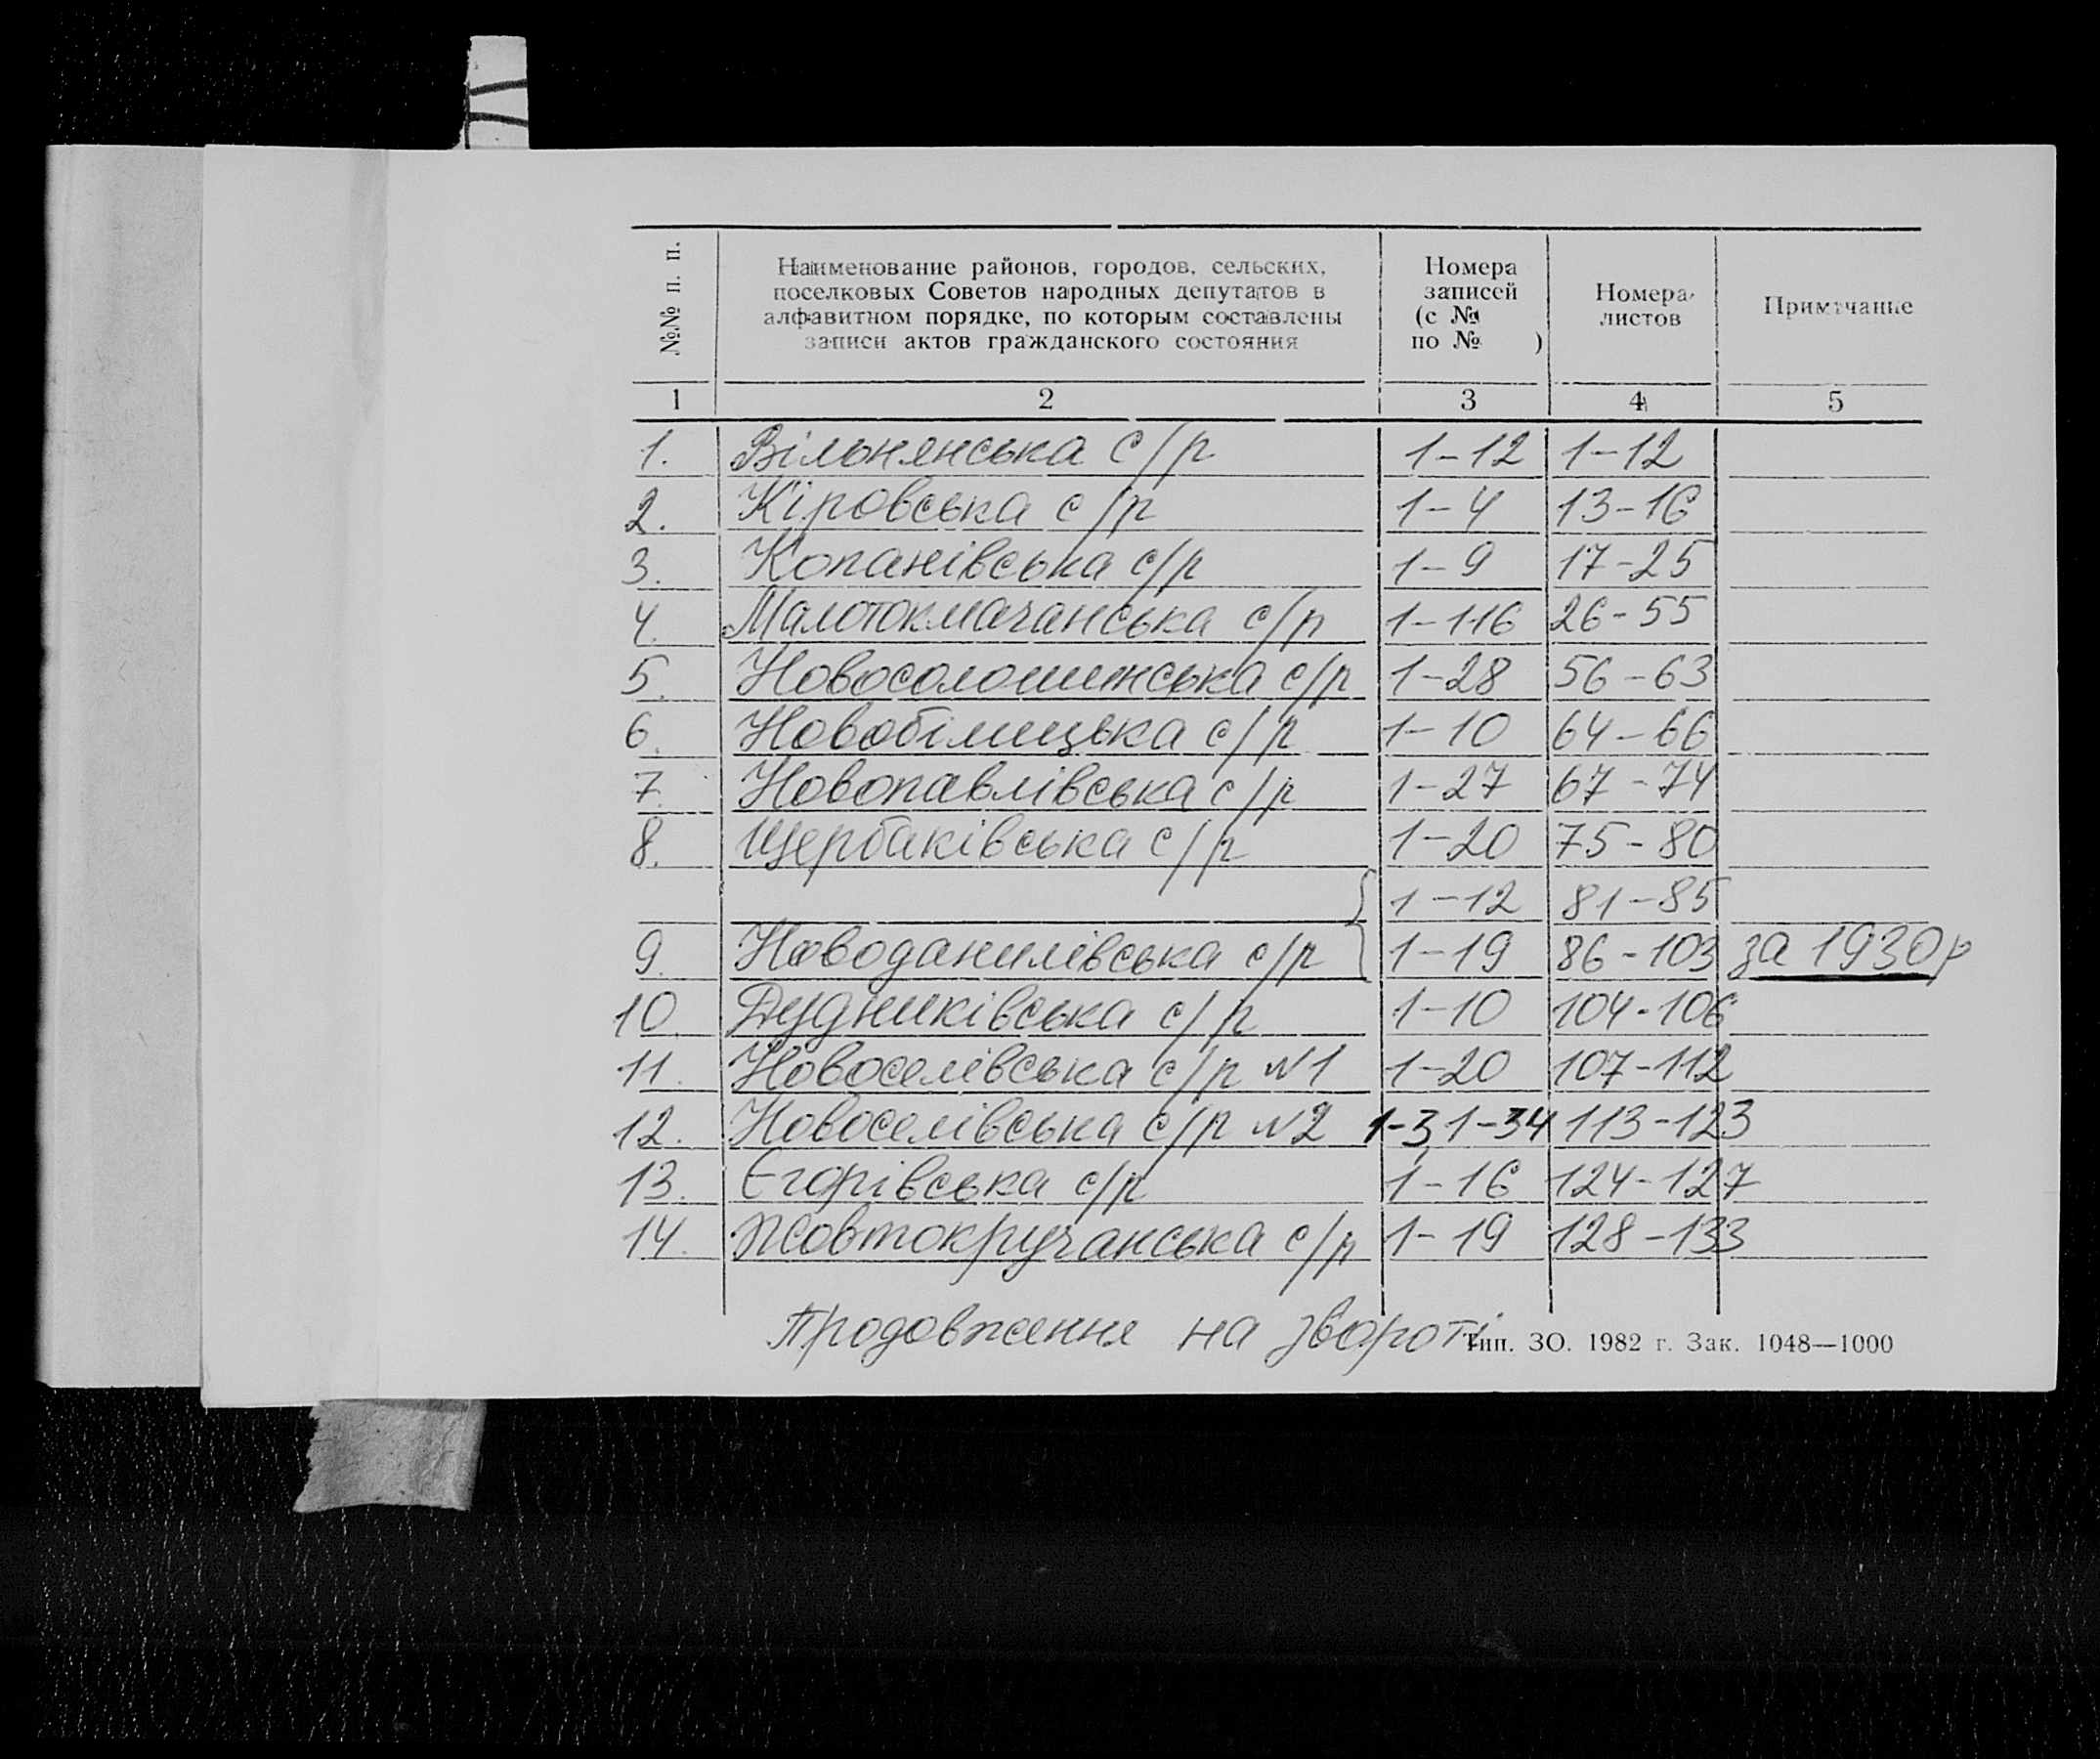 №№ п. п.
Наименование районов, городов, сельских,
поселковых Советов народных депутатов в
алфавитном порядке, по которым составлены
записи актов гражданского состояния
Номера
записей
(с №
по № )
Номера
листов
Примечание
1 2 3 4 5
1. Вільнянська с/р 1-12 1-12
2. Кіровська с/р 1-4 13-16
3. Копанівська с/р 1-9 17-25
4. Малотокмачанська с/р 1-116 26-55
5. Новосолошинська с/р 1-28 56-63
6. Новобілицька с/р 1-10 64-66
7. Новопавлівська с/р 1-27 67-74
8. Щербаківська с/р 1-20 75-80
1-12 81-85
9. Новоданилівська с/р 1-19 86-103 за 1930р
10. Дудниківська с/р 1-10 104-106
11. Новоселівська с/р №1 1-20 107-112
12. Новоселівська с/р №2 1-3, 1-34 113-123
13. Єгорівська с/р 1-16 124-127
14. Жовтокручанська с/р 1-19 128-133
Продовження на звороті
Тип. ЗО. 1982 г. Зак. 1048—1000